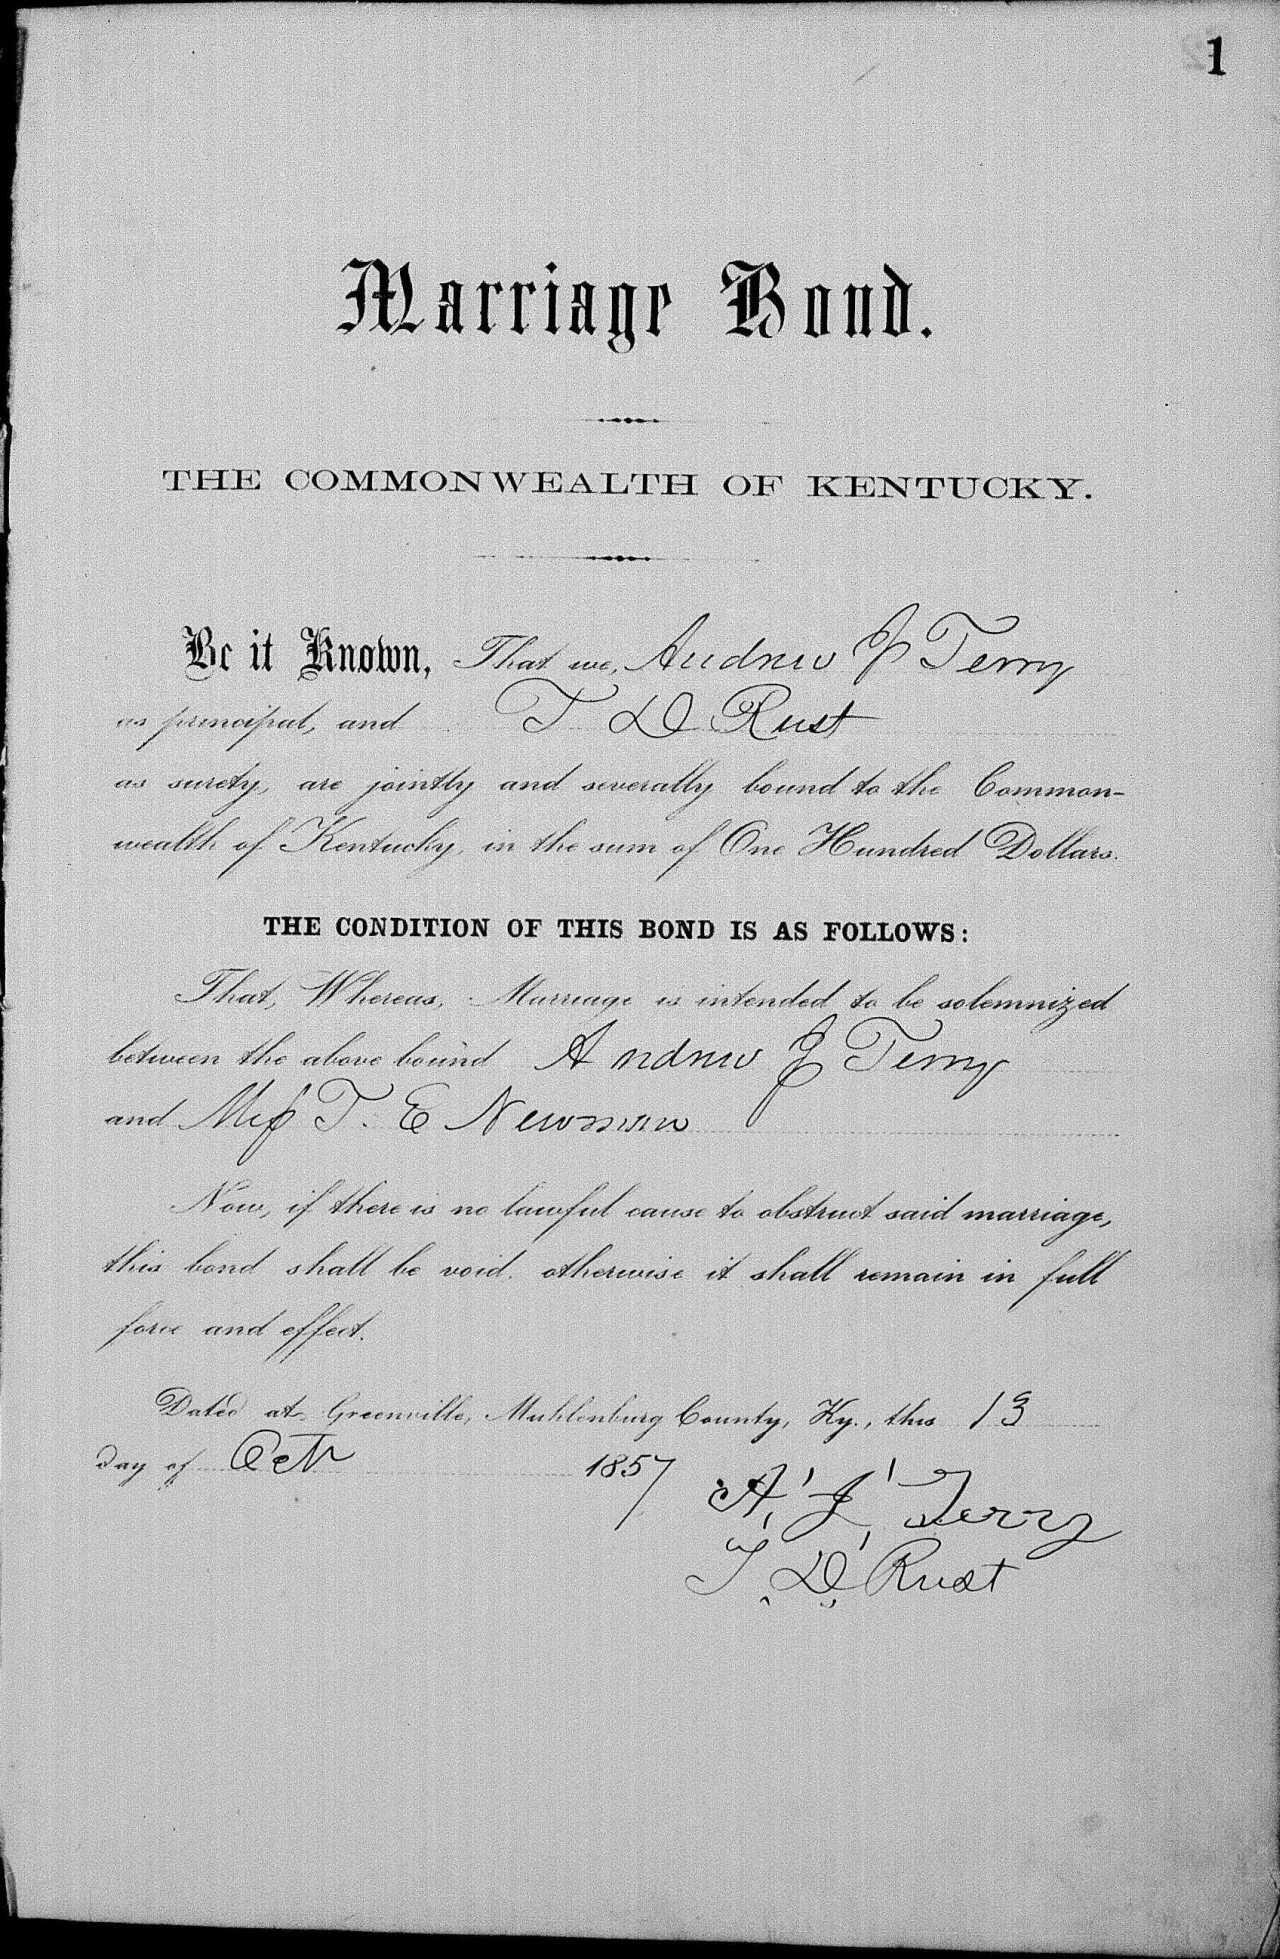 1
Marriage Bond.
THE COMMONWEALTH OF KENTUCKY.
Be it Known, That we, Andrew J Terry
as principal, and T D Rust
as surety, are jointly and severally bound to the Common-
wealth of Kentucky, in the sum of One Hundred Dollars.
THE CONDITION OF THIS BOND IS AS FOLLOWS:
That, Whereas, Marriage is intended to be solemnized
between the above bound Andrew J Terry
and Miss T. E Newman
Now, if there is no lawful cause to obstruct said marriage,
this bond shall be void, otherwise it shall remain in full
force and effect.
Dated at Greenville, Muhlenburg County, Ky., this 13
day of Oct 1857
A. J. Terry
T. D. Rust